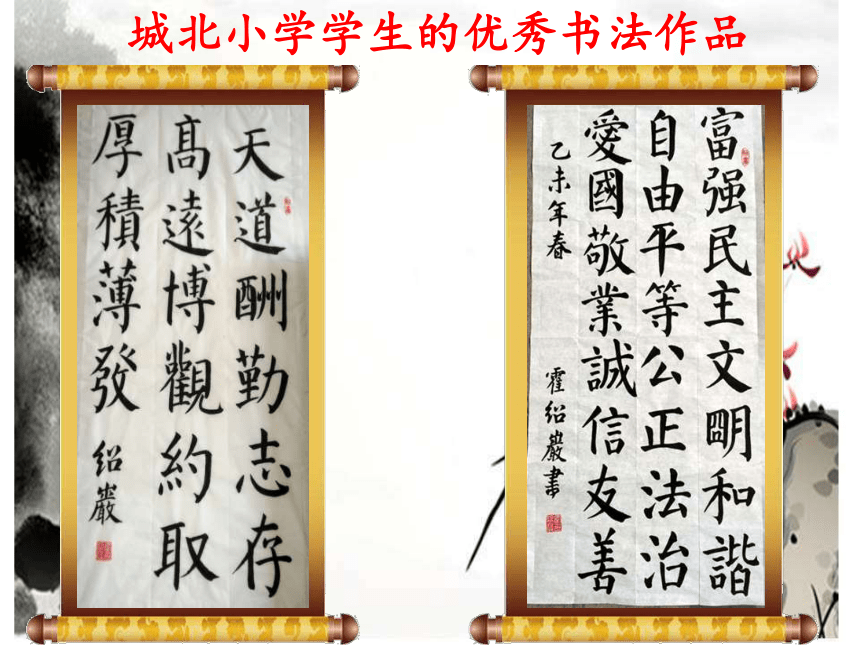 城北小学学生的优秀书法作品
天道酬勤志存
高遠博觀約取
厚積薄發
紹巖
富强民主文明和諧
自由平等公正法治
愛國敬業誠信友善
乙未年春
霍紹巖書